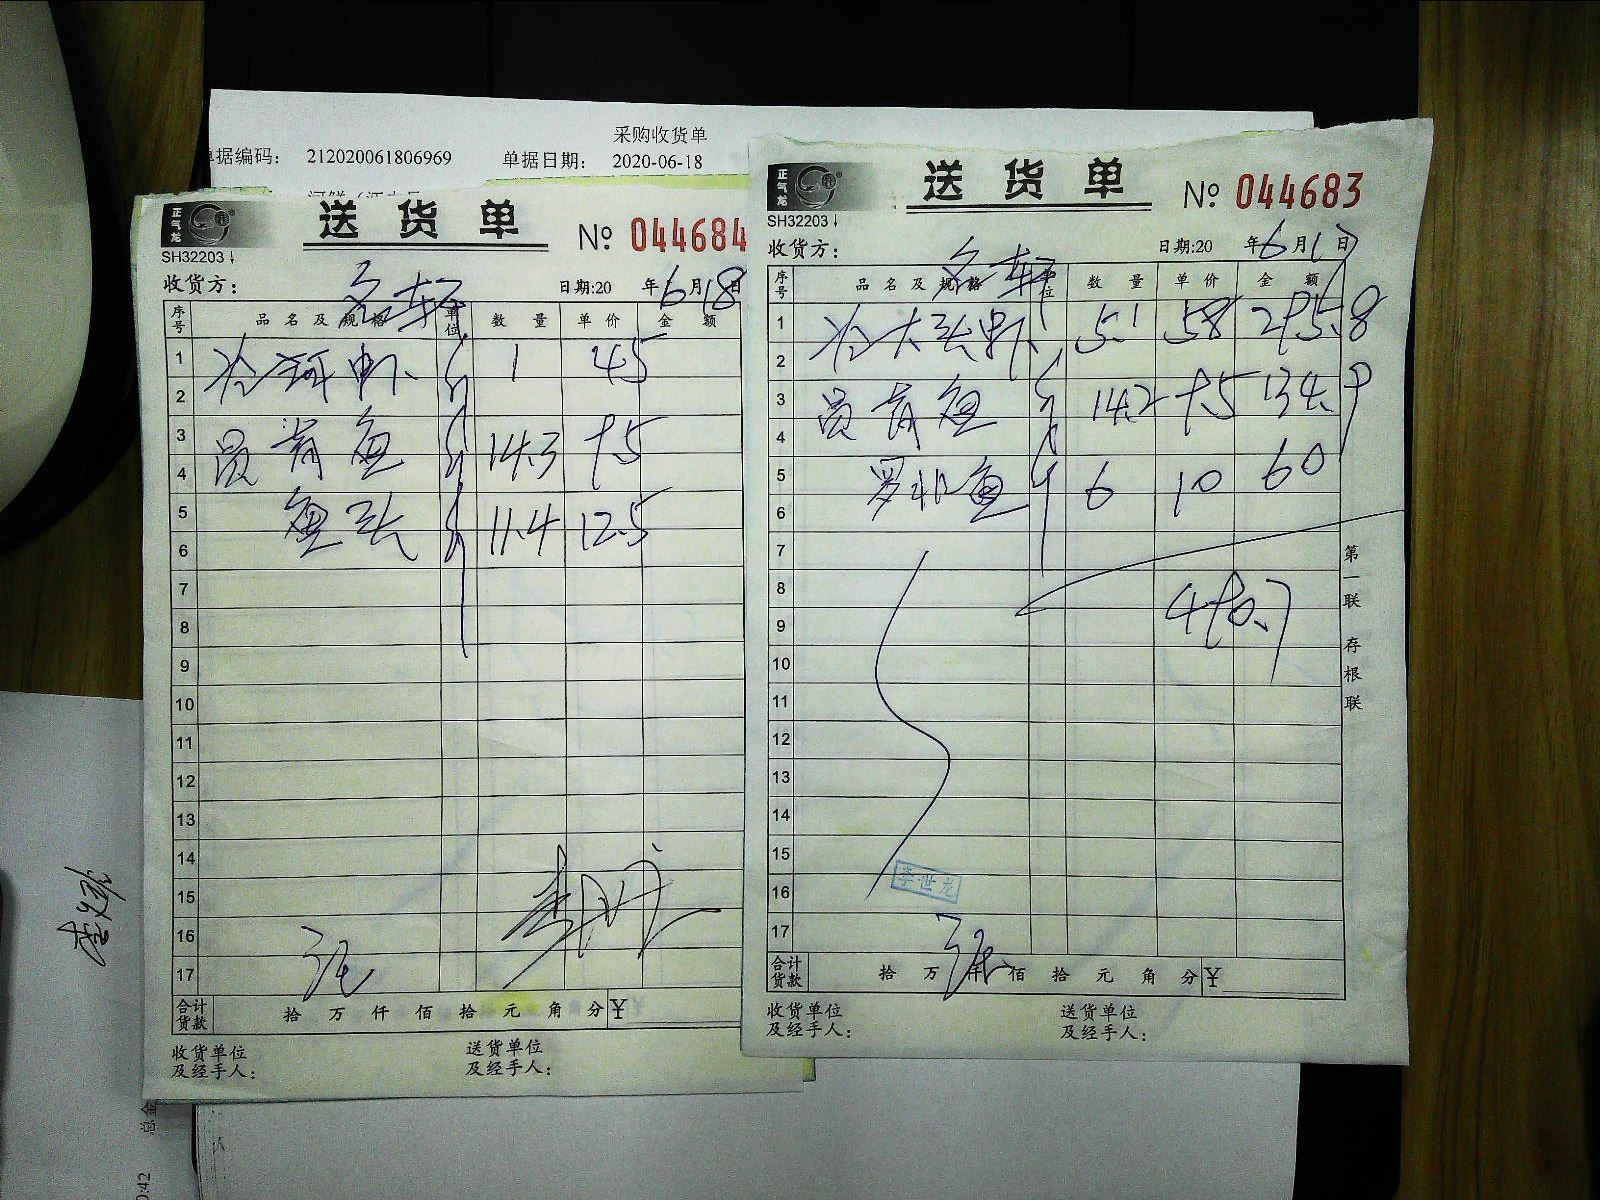 采购收货单
单据编码： 212020061806969 单据日期： 2020-06-18
正气龙
SH32203↓
送货单
№ 044684
收货方：
日期:20 年6月18日
序号 品名及规格 单位 数量 单价 金额
1 1 45
2
3 员肯鱼 14.3 9.5
4
5 鱼头 11.4 12.5
6
7
8
9
10
11
12
13
14
15
16
17
合计货款 拾万仟佰拾元角分 ¥
收货单位及经手人： 送货单位及经手人：
正气龙
SH32203↓
送货单
№ 044683
收货方：
日期:20 年6月17日
序号 品名及规格 单位 数量 单价 金额
1 冷大头虾 5.1 58 295.8
2
3 员肯鱼 14.2 9.5 134.9
4
5 罗非鱼 6 10 60
6
7
8 490.7
9
10
11
12
13
14
15
16 李世龙
17
合计货款 拾万仟佰拾元角分 ¥
收货单位及经手人： 送货单位及经手人：
第一联 存根联
总金
0:42